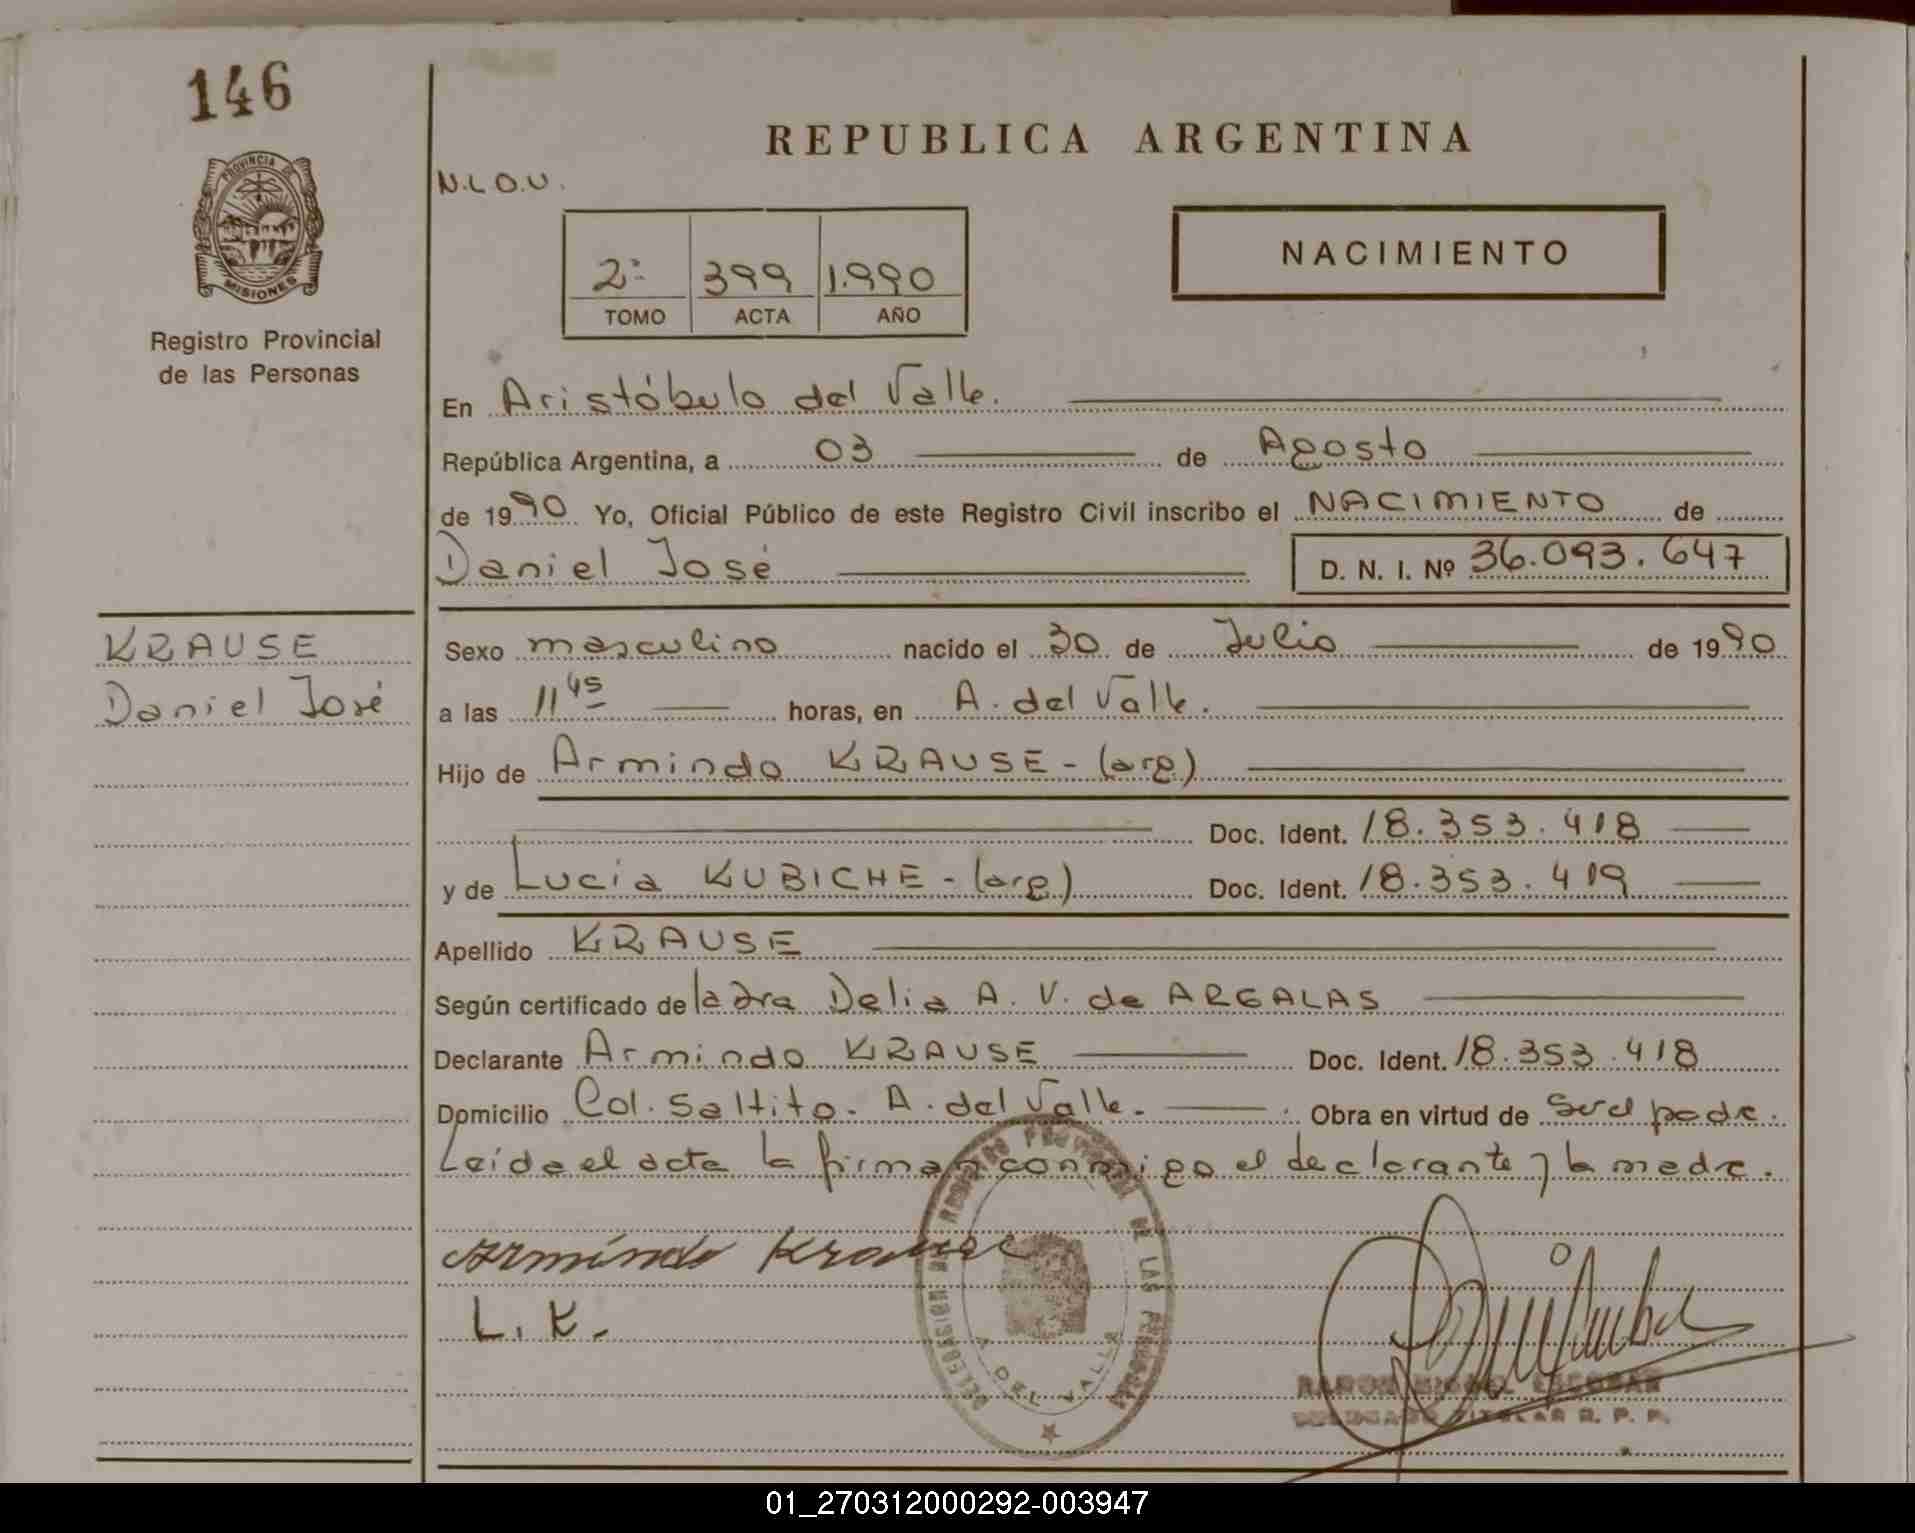 146
PROVINCIA DE
MISIONES
Registro Provincial
de las Personas
REPUBLICA ARGENTINA
N.L.O.U.
2º 399 1.990
TOMO ACTA AÑO
NACIMIENTO
En Aristóbulo del Valle.
República Argentina, a 03 de Agosto
de 1990 Yo, Oficial Público de este Registro Civil inscribo el NACIMIENTO de
Daniel José D. N. I. Nº 36.093.647
KRAUSE
Daniel José
Sexo masculino nacido el 30 de Julio de 1990
a las 11 45 horas, en A. del Valle.
Hijo de Armindo KRAUSE - (arg)
Doc. Ident. 18.353.418
y de Lucía KUBICHE - (arg) Doc. Ident. 18.353.419
Apellido KRAUSE
Según certificado de la dra Delia A. V. de ARGALAS
Declarante Armindo KRAUSE Doc. Ident. 18.353.418
Domicilio Col. Saltito. A. del Valle. Obra en virtud de ser el padre.
Leída el acta la firman conmigo el declarante y la madre.
Armindo Krause
L. K.
DELEGACION DEL REGISTRO PROVINCIAL DE LAS PERSONAS
A DEL VALLE
RAMON MIGUEL ESCOBAR
DELEGADO TITULAR R. P. P.
01_270312000292-003947